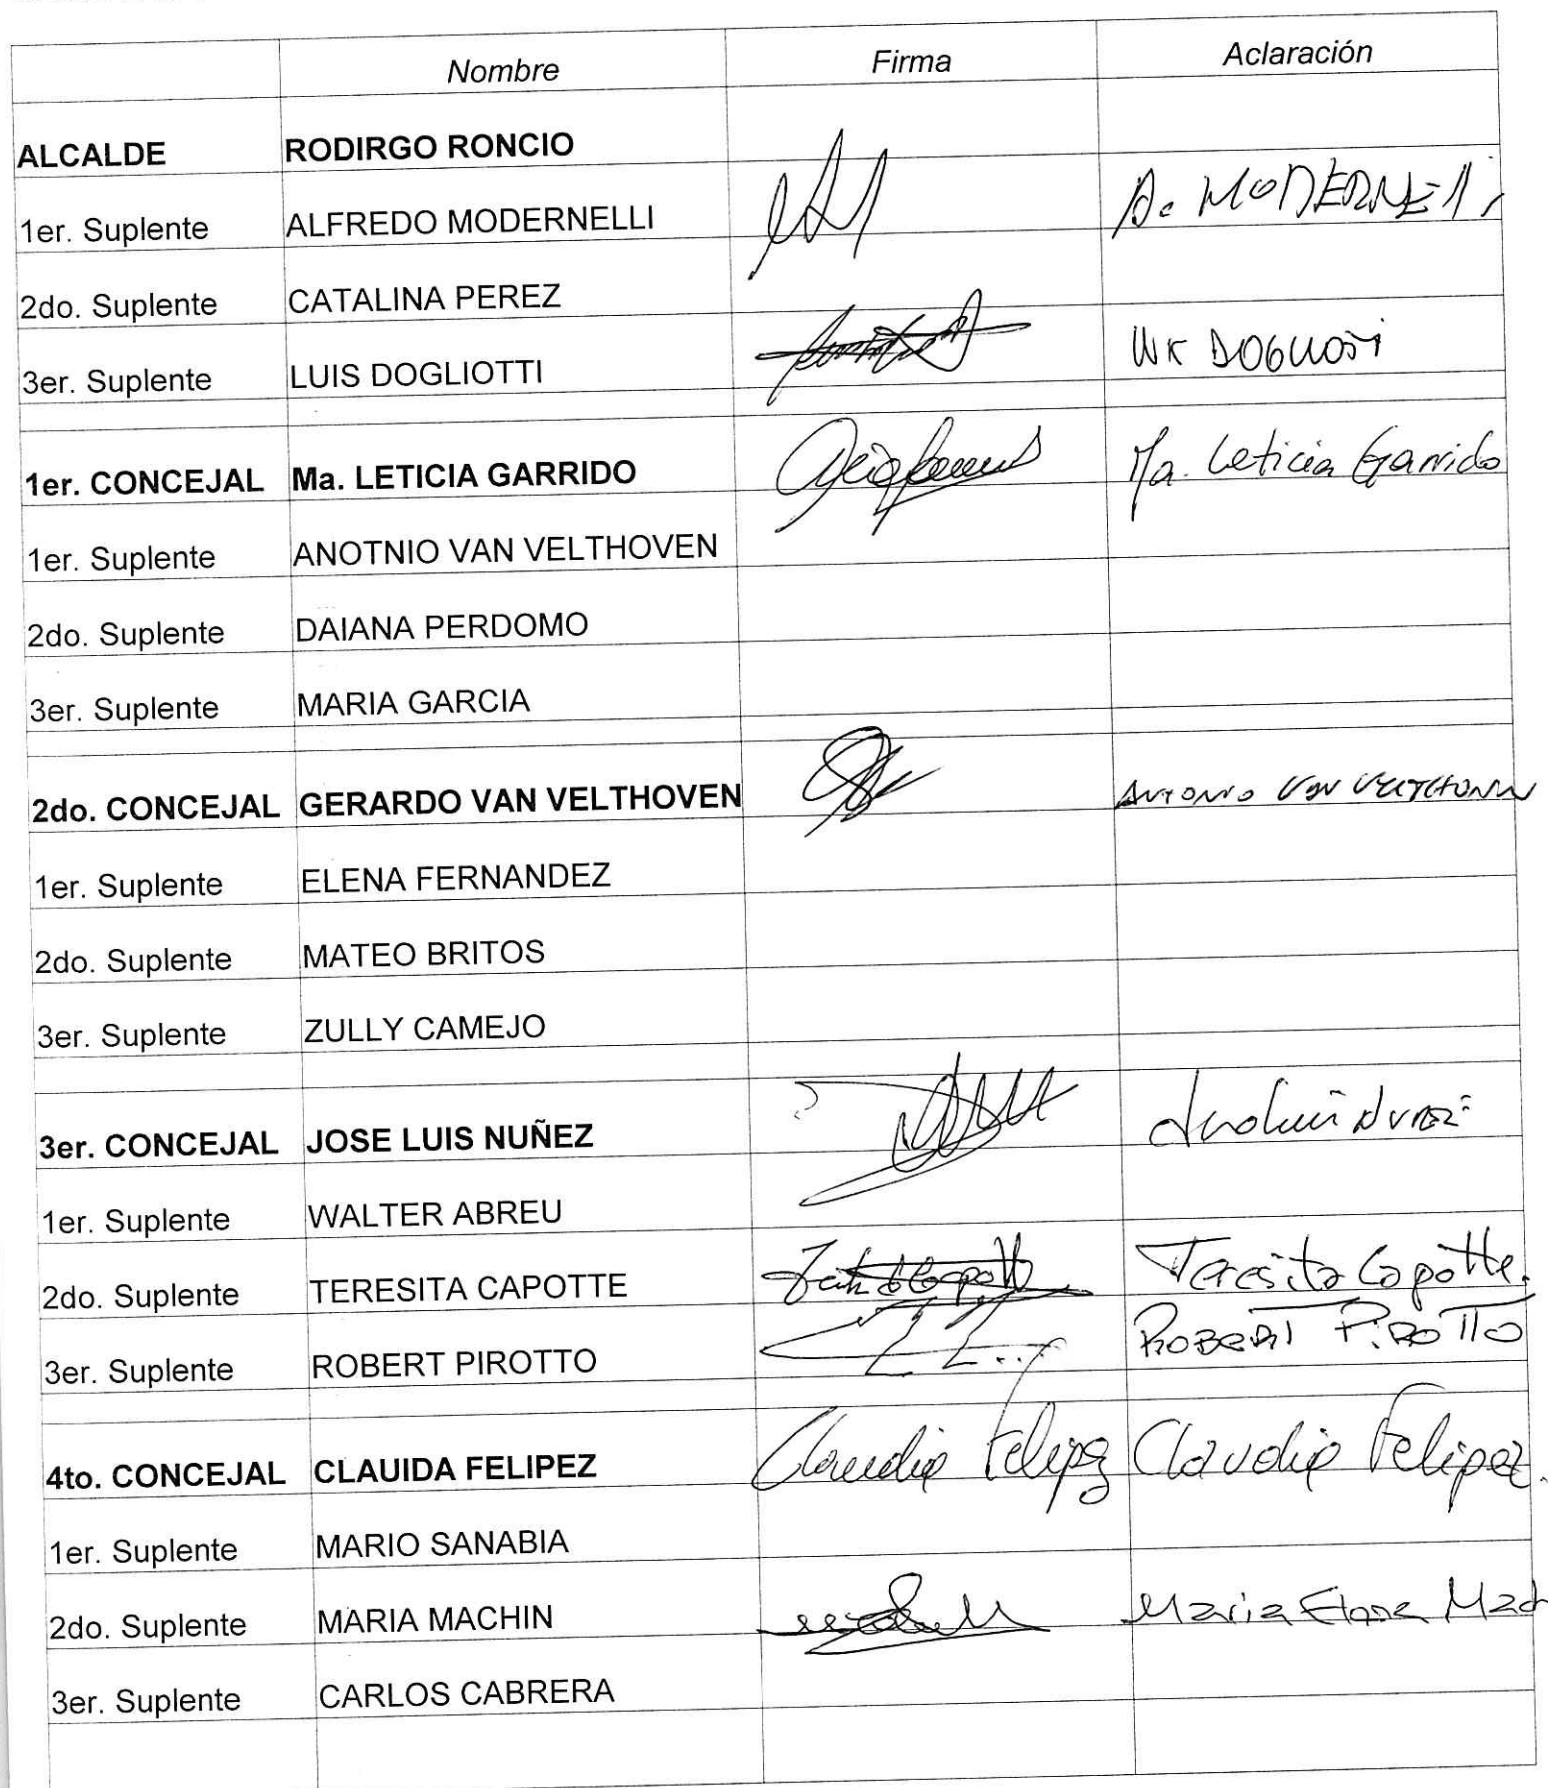 Nombre Firma Aclaración
ALCALDE RODIRGO RONCIO
1er. Suplente ALFREDO MODERNELLI A. MODERNELLI
2do. Suplente CATALINA PEREZ
3er. Suplente LUIS DOGLIOTTI DOGLIOTTI
1er. CONCEJAL Ma. LETICIA GARRIDO Ma. Leticia Garrido
1er. Suplente ANOTNIO VAN VELTHOVEN
2do. Suplente DAIANA PERDOMO
3er. Suplente MARIA GARCIA
2do. CONCEJAL GERARDO VAN VELTHOVEN ANTONIO VAN VELTHOVEN
1er. Suplente ELENA FERNANDEZ
2do. Suplente MATEO BRITOS
3er. Suplente ZULLY CAMEJO
3er. CONCEJAL JOSE LUIS NUÑEZ
1er. Suplente WALTER ABREU
2do. Suplente TERESITA CAPOTTE Teresita Capotte.
3er. Suplente ROBERT PIROTTO ROBERT PIROTTO
4to. CONCEJAL CLAUIDA FELIPEZ Claudia Felipez Claudia Felipez.
1er. Suplente MARIO SANABIA
2do. Suplente MARIA MACHIN Maria Elena Mach
3er. Suplente CARLOS CABRERA